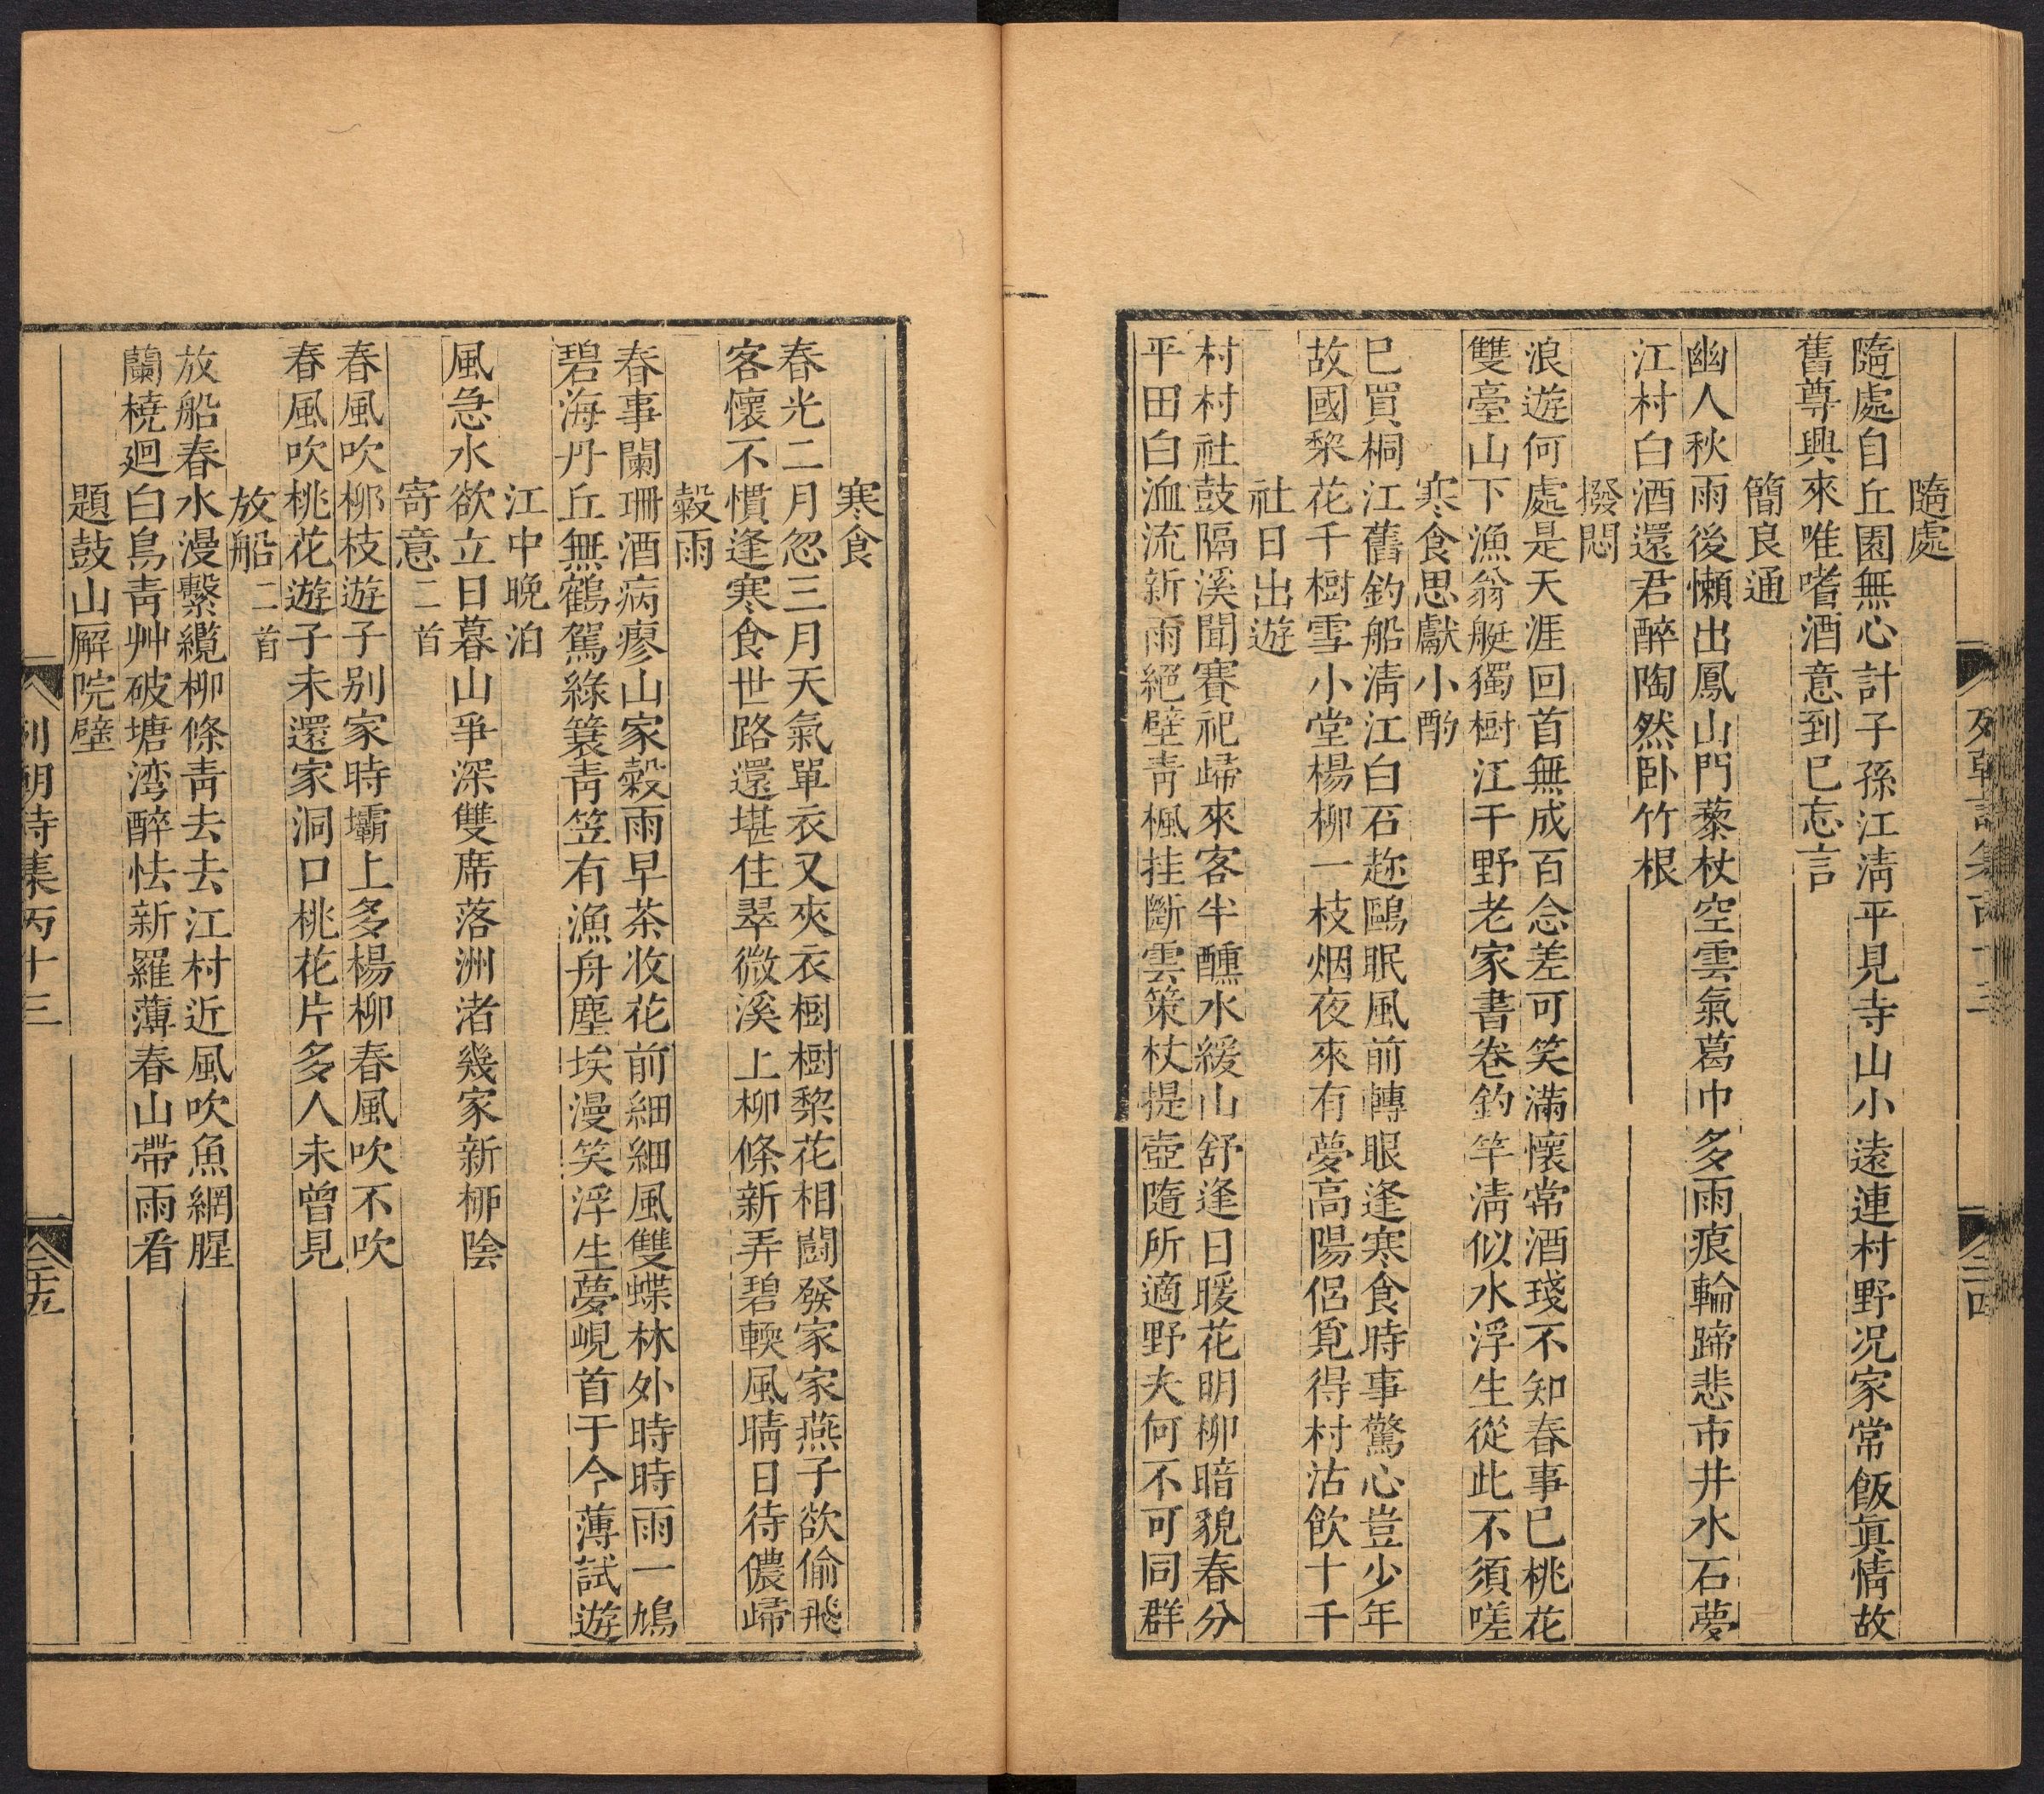 隨處
隨處自丘園無心計子孫江淸平見寺山小遠連村野况家常飯眞情故
舊尊興來唯嗜酒意到已忘言
簡良通
幽人秋雨後懶出鳳山門藜杖空雲氣葛巾多雨痕輪蹄悲市井水石夢
江村白酒還君醉陶然卧竹根
撥悶
浪遊何處是天涯回首無成百念差可笑滿懷常酒琖不知春事已桃花
雙臺山下漁翁艇獨樹江干野老家書卷釣竿淸似水浮生從此不須嗟
寒食思獻小酌
已買桐江舊釣船淸江白石趂鷗眠風前轉眼逢寒食時事驚心豈少年
故國棃花千樹雪小堂楊柳一枝烟夜來有夢高陽侶覓得村沽飮十千
社日出遊
村村社鼓隔溪聞賽祀歸來客半醺水緩山舒逢日暖花明柳暗貌春分
平田白洫流新雨絕壁靑楓挂斷雲策杖提壺隨所適野夫何不可同群
列朝詩集丙十三
二四
寒食
春光二月忽三月天氣單衣又夾衣樹樹棃花相鬪發家家燕子欲偷飛
客懷不慣逢寒食世路還堪住翠微溪上柳條新弄碧輭風晴日待儂歸
穀雨
春事闌珊酒病瘳山家穀雨早茶收花前細細風雙蝶林外時時雨一鳩
碧海丹丘無鶴駕綠簑靑笠有漁舟塵埃漫笑浮生夢峴首于今薄試遊
江中晚泊
風急水欲立日暮山爭深雙席落洲渚幾家新柳陰
寄意二首
春風吹柳枝遊子别家時壩上多楊柳春風吹不吹
春風吹桃花遊子未還家洞口桃花片多人未曾見
放船二首
放船春水漫繫纜柳條靑去去江村近風吹魚網腥
蘭橈廻白鳥靑艸破塘湾醉怯新羅薄春山帶雨看
題鼓山廨院壁
列朝詩集丙十三
二十五